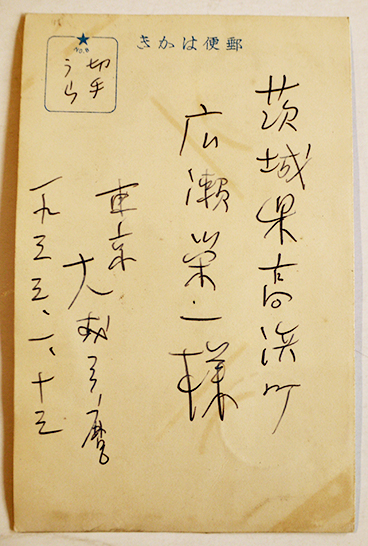 郵便はかき
No.8
切手
うら
茨城県高浜町
広瀬栄一様
東京
一九三三、一、十三